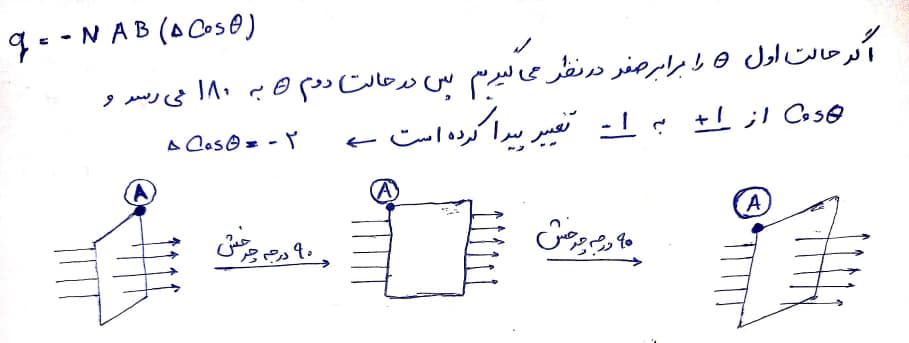 q = - N A B (Δ Cosθ)
اگر حالت اول θ را برابر صفر در نظر می گیریم پس در حالت دوم θ به ۱۸۰ می رسد و
Cosθ از +۱ به -۱ تغییر پیدا کرده است ← Δ Cosθ = -۲
A
۹۰ درجه چرخش
A
۹۰ درجه چرخش
A